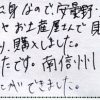 身なので、安曇野・
とお土産屋さんで見
り、購入しました。
たです。南信州
とができました。